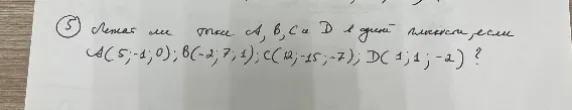 ⑤ Лежат ли точки A, B, C и D в одной плоскости, если
A(5;-1;0); B(-2;7;1); C(12;-15;-7); D(1;1;-2)?